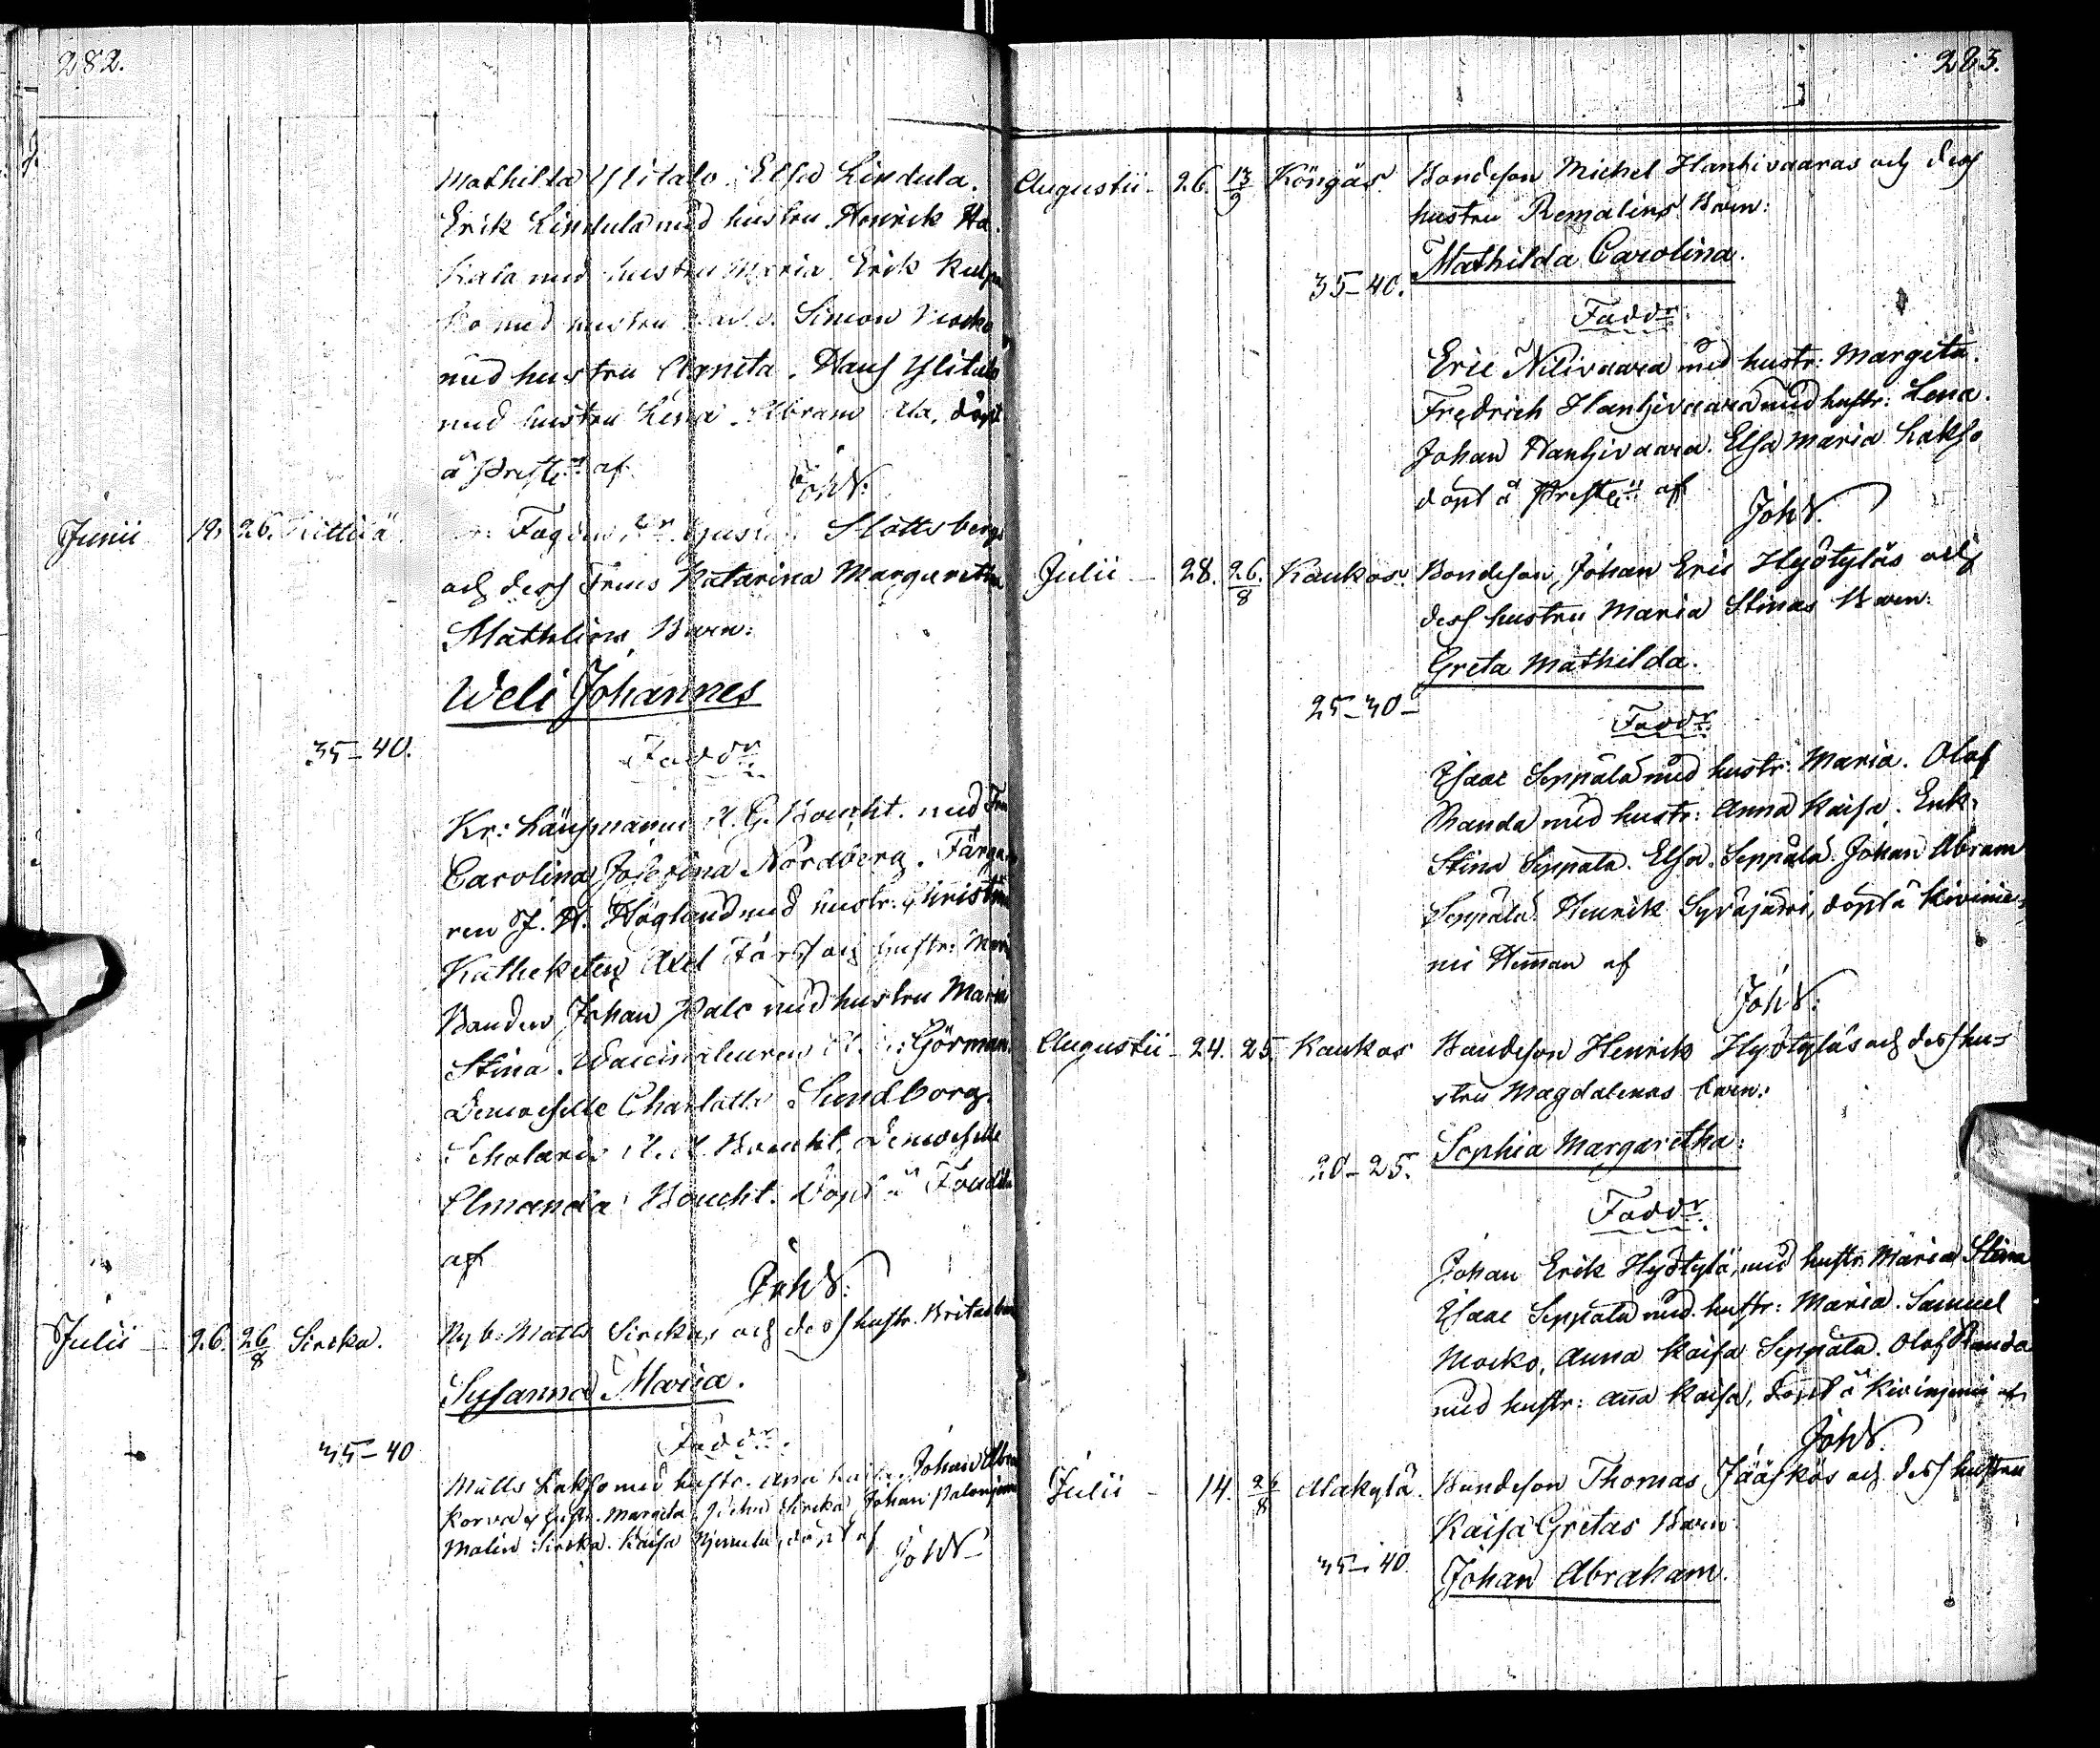 282.
Mathilda Ylitalo. Elsa Lindula.
Erik Lindula med hustru. Henrik Ha
kala med hustru Maria. Erik
ko med hustru Simon
med hustru Agneta. Hans Ylitalo
med hustru Lena. Abram Ala, döpt
å Prestg. af
JohW:
Junii 19. 26. Kittilä. Slottsberg
och dess Frus Katarina Margaretha
Barn:
Weli Johannes
35–40.
Faddr.
Kr: Länsmannen Boucht. med Fru
Carolina Josefina Nordberg. Färga
ren J. H. Höglund med hustr: Christina
Katheketen Axel och hustr:
Bonden Johan Palo med hustru Maria
Stina. Vaccinateuren Görman.
Demoiselle Charlotta Sundborg.
Scholaren Boucht. Demoiselle
Amanda Boucht. Döpt å
af
JohW:
Julii – 26. 26/8 Sircka. Nyb: Matts Sirckas och dess hustr. Brita
Susanna Maria.
35–40
Faddr.
Matts Lakso med hustr. Anna Kaisa. Johan Abra
Korva hustr. Margeta. Sircka Johan
Malin Sircka. Kaisa döpt af
JohW
283.
Augustii – 26. 13/9 Köngäs. Bondeson Michel Hanhivaaras och dess
hustru Remalins Barn:
Mathilda Carolina.
35–40.
Faddr.
Eric Nilivaara med hustr: Margeta.
Fredrich Hanhivaara med hustr: Lena.
Johan Hanhivaara. Elsa Maria Lakso
döpt å Prestg. af
JohW.
Julii – 28. 26/8 Kaukos. Bondeson Johan Eric Hyötyläs och
dess hustru Maria Stinas Barn:
Greta Mathilda.
25–30–
Faddr.
Isaac Seppälä med hustr. Maria. Olof
Randa med hustr: Anna Kaisa. Enk:
Stina Seppälä. Elsa Seppälä. Johan Abram
Seppälä. Henrik Syväjärvi, döpt å Kivinie-
mi Hemman af
JohW:
Augustii – 24. 25. Kaukos Bondeson Henrik Hyötyläs och dess hu-
stru Magdalenas barn:
Sophia Margaretha:
20–25.
Faddr.
Johan Erik Hyötylä, med hustr: Maria Stina
Isaac Seppälä med hustr: Maria. Samuel
Mocko, Anna Kaisa Seppälä. Olof Randa
med hustr: Anna Kaisa, döpt å Kiviniemi af
JohW.
Julii – 14. 26/8 Alakylä. Bondeson Thomas Jääskös och dess hustru
Kaisa Gretas Barn
35–40. Johan Abraham.